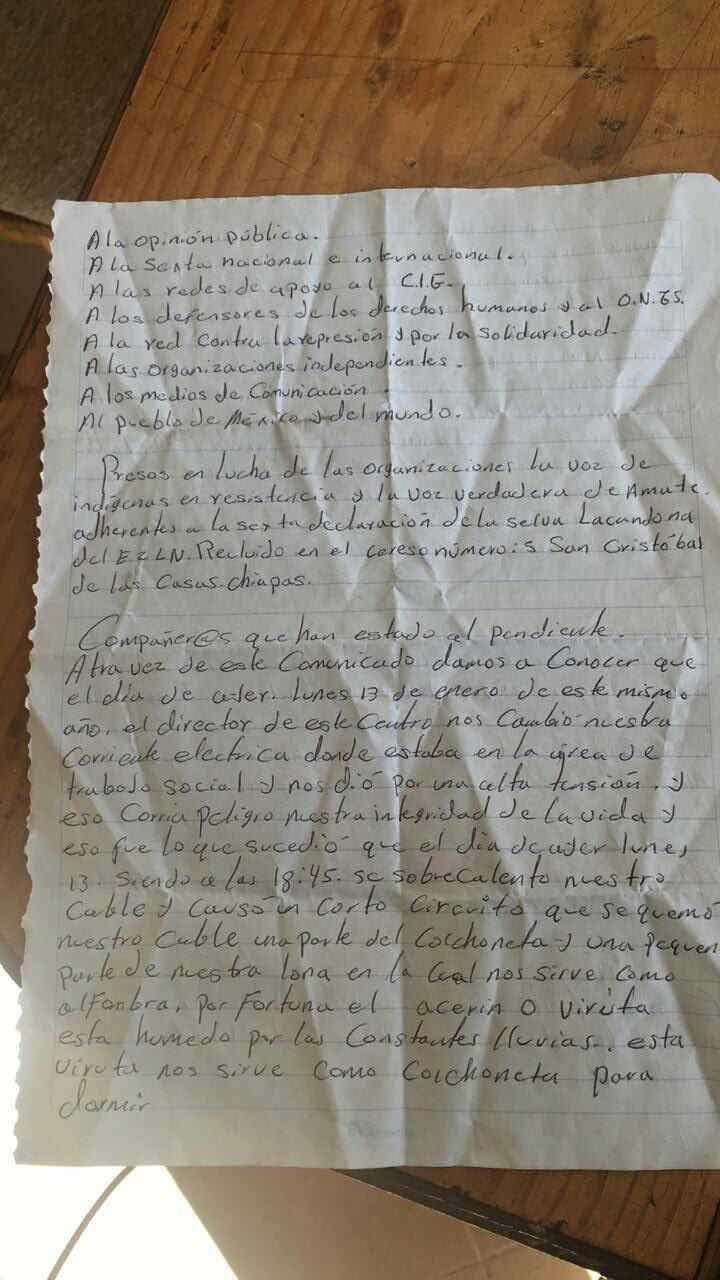 A la opinión pública.
A la Sexta nacional e internacional.
A las redes de apoyo al C.I.G.
A los defensores de los derechos humanos y al O.N.GS.
A la red contra la represión y por la Solidaridad.
A las organizaciones independientes.
A los medios de Comunicación.
Al pueblo de México y del mundo.
Presos en lucha de las organizaciones la voz de
indígenas en resistencia y la voz verdadera de Amate.
adherentes a la sexta declaración de la selva Lacandona
del EZLN. Recluido en el cereso número: 5 San Cristóbal
de las Casas. chiapas.
Compañer@s que han estado al pendiente.
Atravez de este Comunicado damos a Conocer que
el día de ayer. lunes 13 de enero de este mismo
año, el director de este Centro nos Cambió nuestra
Corriente electrica donde estaba en la área de
trabajo social y nos dió por una alta tensión. y
eso Corria peligro nuestra integridad de la vida y
eso fue lo que sucedió que el día de ayer lunes,
13. siendo a las 18:45. se sobrecalento nuestro
Cable y causó un Corto Circuito que se quemó
nuestro Cable una parte del Colchoneta y una pequen
parte de nuestra lona en la Cual nos sirve como
alfonbra, por Fortuna el acerin o viruta
esta humedo por las Constantes lluvias.. esta
viruta nos sirve como Colchoneta para
dormir